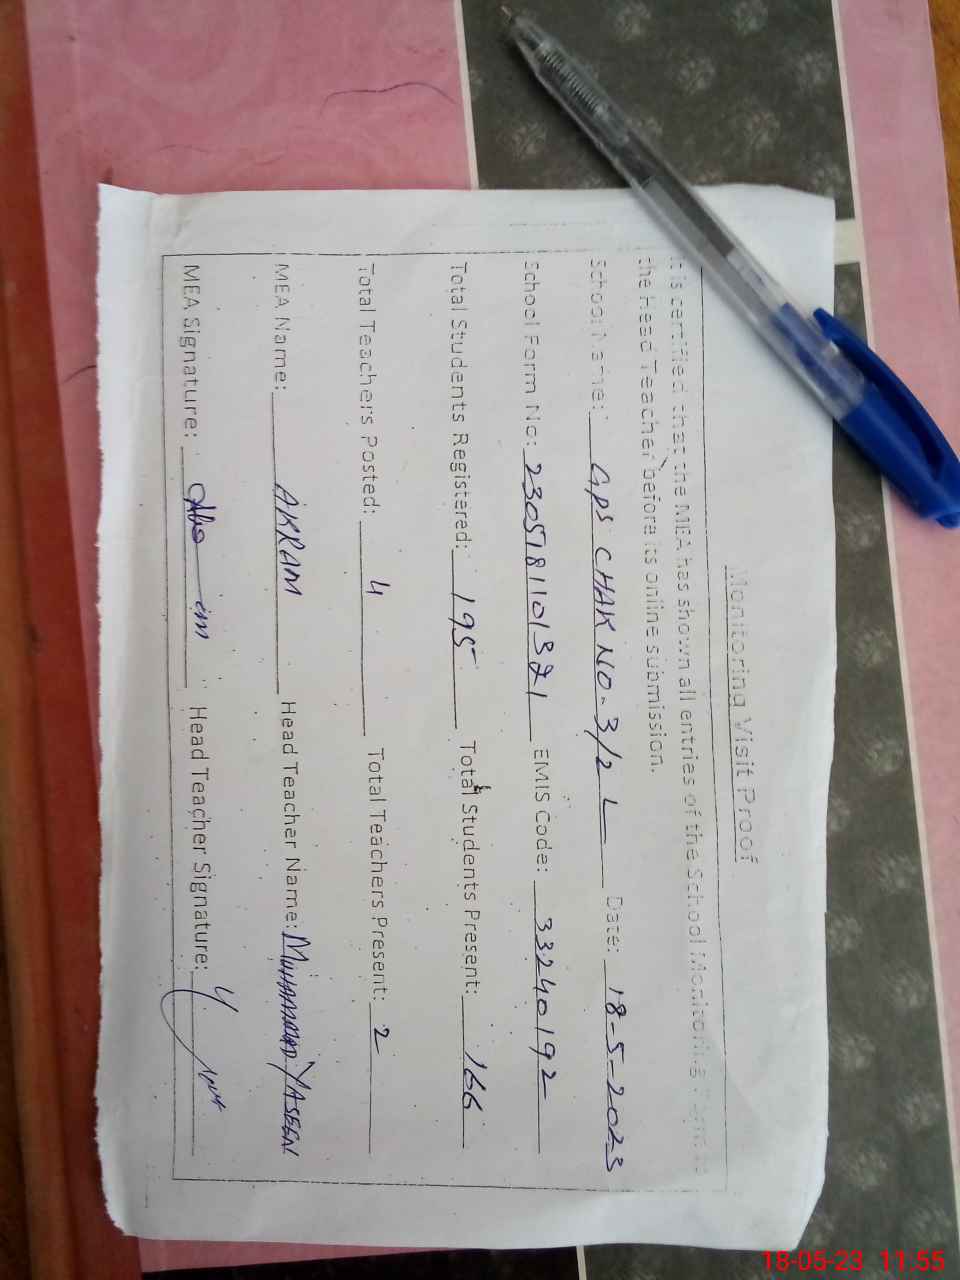 Monitoring Visit Proof
It is certified that the MEA has shown all entries of the School Monitoring Form to
the Head Teacher before its online submission.
School Name: GPS CHAK NO-3/2 L Date: 18-5-2023
School Form No: 2305181101321 EMIS Code: 33240192
Total Students Registered: 195 Total Students Present: 166
Total Teachers Posted: 4 Total Teachers Present: 2
MEA Name: AKRAM Head Teacher Name: MUHAMMAD YASEEN
MEA Signature: Head Teacher Signature:
18-05-23 11:55